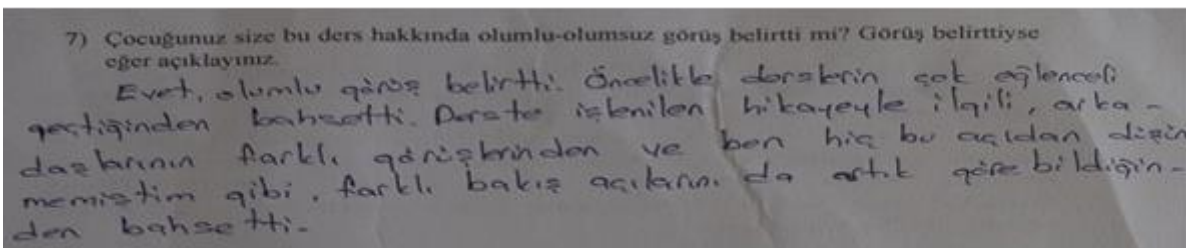 7) Çocuğunuz size bu ders hakkında olumlu-olumsuz görüş belirtti mi? Görüş belirttiyse
eğer açıklayınız.
Evet, olumlu görüş belirtti. Öncelikle derslerin çok eğlenceli
geçtiğinden bahsetti. Derste işlenilen hikayeyle ilgili, arka-
daşlarının farklı görüşlerinden ve ben hiç bu açıdan düşün
memiştim gibi, farklı bakış açılarını da artık görebildiğin-
den bahsetti.